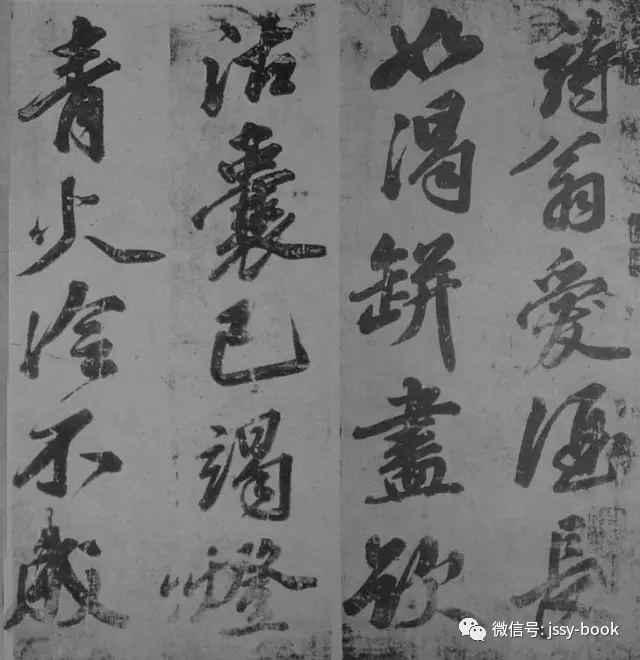 詩翁愛酒長
如渴缾盡欲
沽囊已竭燈
青火冷不成
微信号: jssy-book